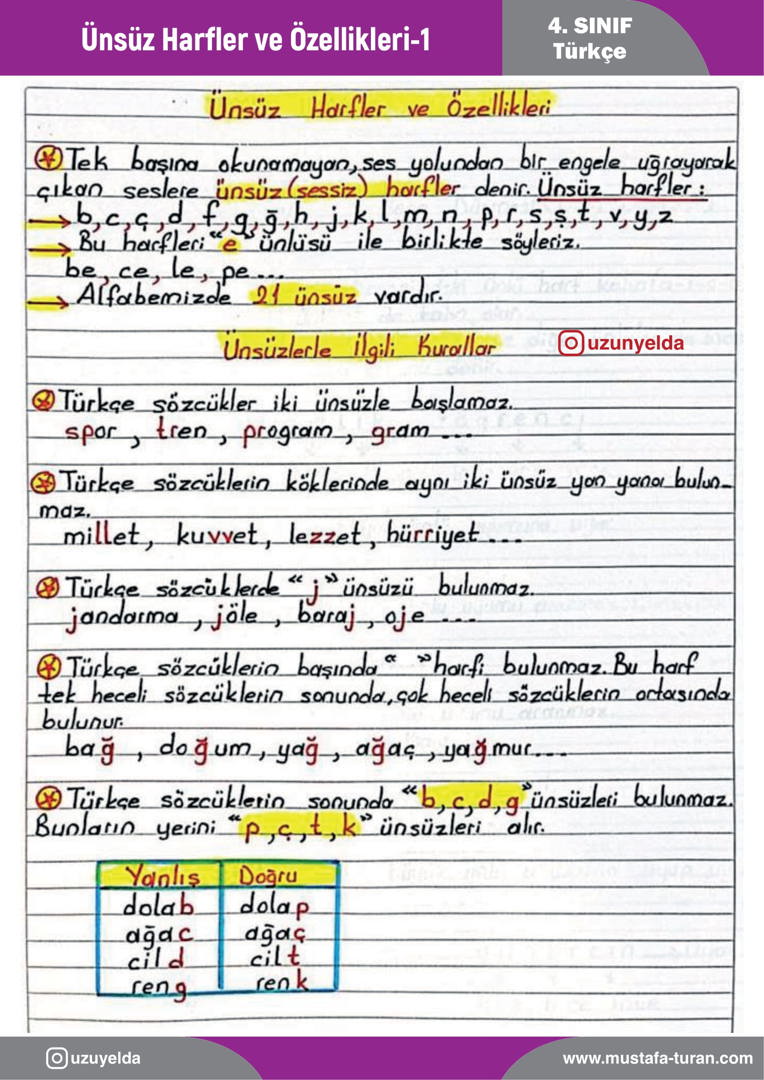 Ünsüz Harfler ve Özellikleri-1
4. SINIF
Türkçe
Ünsüz Harfler ve Özellikleri
Tek başına okunamayan, ses yolundan bir engele uğrayarak
çıkan seslere ünsüz (sessiz) harfler denir. Ünsüz harfler:
b, c, ç, d, f, g, ğ, h, j, k, l, m, n, p, r, s, ş, t, v, y, z
Bu harfleri "e" ünlüsü ile birlikte söyleriz.
be, ce, le, pe ...
Alfabemizde 21 ünsüz vardır.
Ünsüzlerle ilgili Kurallar
uzunyelda
Türkçe sözcükler iki ünsüzle başlamaz.
spor, tren, program, gram ...
Türkçe sözcüklerin köklerinde aynı iki ünsüz yan yana bulun-
maz.
millet, kuvvet, lezzet, hürriyet ...
Türkçe sözcüklerde "j" ünsüzü bulunmaz.
jandarma, jöle, baraj, oje ...
Türkçe sözcüklerin başında " " harfi bulunmaz. Bu harf
tek heceli sözcüklerin sonunda, çok heceli sözcüklerin ortasında
bulunur.
bağ, doğum, yağ, ağaç, yağmur....
Türkçe sözcüklerin sonunda "b, c, d, g" ünsüzleri bulunmaz.
Bunların yerini "p, ç, t, k" ünsüzleri alır.
Yanlış Doğru
dolab dolap
ağac ağaç
cild cilt
reng renk
uzuyelda
www.mustafa-turan.com